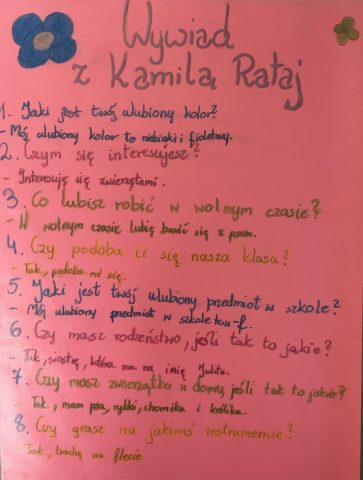 Wywiad
z Kamilą Rataj
1. Jaki jest twój ulubiony kolor?
- Mój ulubiony kolor to niebieski i fioletowy.
2. Czym się interesujesz?
- Interesuję się zwierzętami.
3. Co lubisz robić w wolnym czasie?
- W wolnym czasie lubię bawić się z psem.
4. Czy podoba ci się nasza klasa?
- Tak, podoba mi się.
5. Jaki jest twój ulubiony predmiot w szkole?
- Mój ulubiony predmiot w szkole to w-f.
6. Czy masz rodzeństwo, jeśli tak to jakie?
- Tak, siostrę, która ma na imię Julita.
7. Czy masz zwierzątko w domu, jeśli tak to jakie?
- Tak, mam psa, rybki, chomika i królika.
8. Czy grasz na jakimś instrumencie?
- Tak, trochę na flecie.